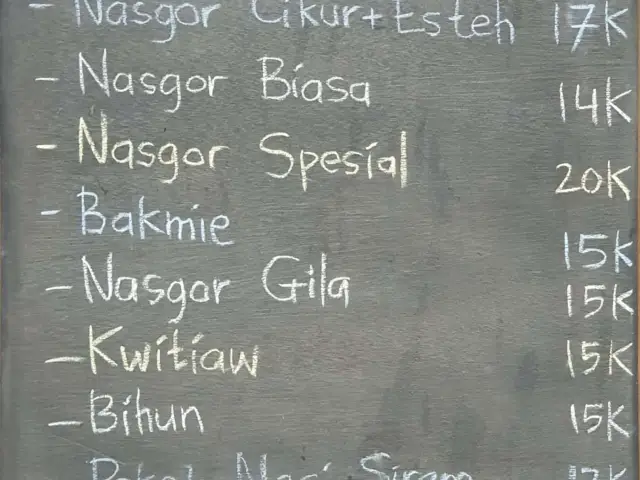 - Nasgor Cikur + Es teh 17K
- Nasgor Biasa 14K
- Nasgor Spesial 20K
- Bakmie 15K
- Nasgor Gila 15K
- Kwitiaw 15K
- Bihun 15K
Nasi Siram